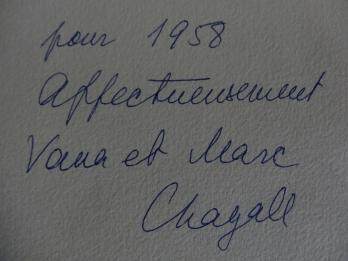 pour 1958
Affectueusement
Vava et Marc
Chagall